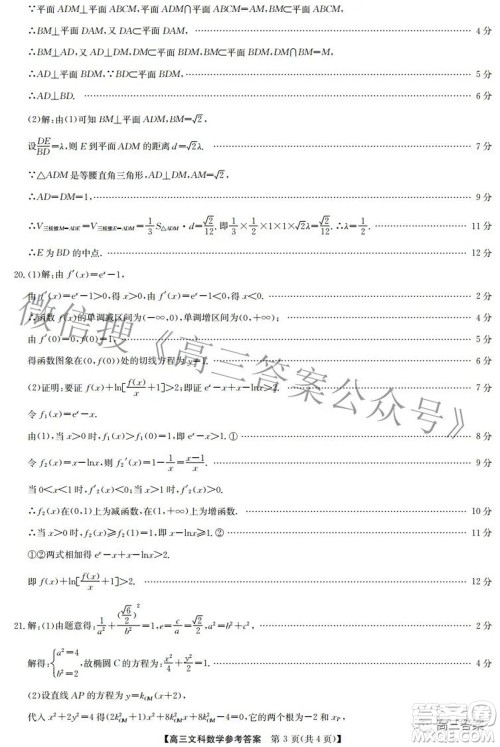 ∵平面ADM⊥平面ABCM,平面ADM∩平面ABCM=AM,BM⊂平面ABCM,
∴BM⊥平面DAM,又DA⊂平面DAM, 4分
∴BM⊥AD,又AD⊥DM,DM⊂平面BDM,BM⊂平面BDM,DM∩BM=M,
∴AD⊥平面BDM,∵BD⊂平面BDM, 5分
∴AD⊥BD. 6分
(2)解:由(1)可知BM⊥平面ADM,BM=√2,
设DE/BD=λ,则E到平面ADM的距离d=√2λ. 7分
∵△ADM是等腰直角三角形,
∴AD=DM=1, 9分
∴V三棱锥M-ADE=V三棱锥E-ADM=1/3 S△ADM·d=√2/12.即1/3×1/2×1×1×√2λ=√2/12.∴λ=1/2. 11分
∴E为BD的中点. 12分
20.(1)解:由f′(x)=eˣ-1,
由f′(x)=eˣ-1>0,得x>0,由f′(x)<0,得x<0. 2分
∴函数f(x)的单调减区间为(-∞,0),单调增区间为(0,+∞). 4分
由f′(0)=0, 5分
得函数图象在(0,f(0))处的切线方程为y=1. 6分
(2)证明:要证f(x)+ln[f(x)/x+1]>2;即证eˣ-x+x-lnx>2. 7分
令f₁(x)=eˣ-x,
由(1),当x>0时,f₁(x)>f(0)=1,即eˣ-x>1.① 8分
令f₂(x)=x-lnx,则f₂′(x)=1-1/x=(x-1)/x. 9分
当0<x<1时,f₂′(x)<0,当x>1时,f₂′(x)>0.
∴f₂(x)在(0,1)上为减函数,在(1,+∞)上为增函数. 10分
∴当x>0时,f₂(x)≥f₂(1)=1,即x-lnx≥1.② 11分
①②两式相加得eˣ-x+x-lnx>2.
即f(x)+ln[f(x)/x+1]>2. 12分
21.解:(1)由题意得:1/a²+(√6/2)²/b²=1,e=c/a=√2/2,a²=b²+c². 2分
解得:{a²=4 b²=2,故椭圆C的方程为:x²/4+y²/2=1. 4分
(2)设直线AP的方程为y=k_OM(x+2),
代入x²+2y²=4得(2k²_OM+1)x²+8k²_OM x+8k²_OM-4=0,
【高三文科数学参考答案 第3页(共4页)】
微信搜《高三答案公众号》
高三答案